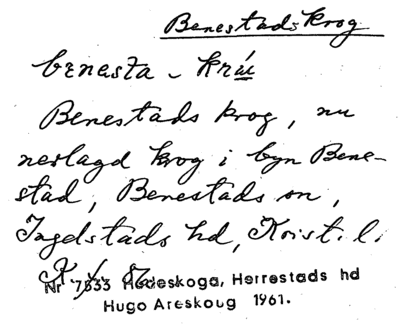 Benestads krog
benesta - kräu
Benestads krog, nu
neslagd krog i byn Bene-
stad, Benestads sn,
Ingelstads hd, Krist. l.
Nr 7533 Hedeskoga, Herrestads hd
Hugo Areskoug 1961.